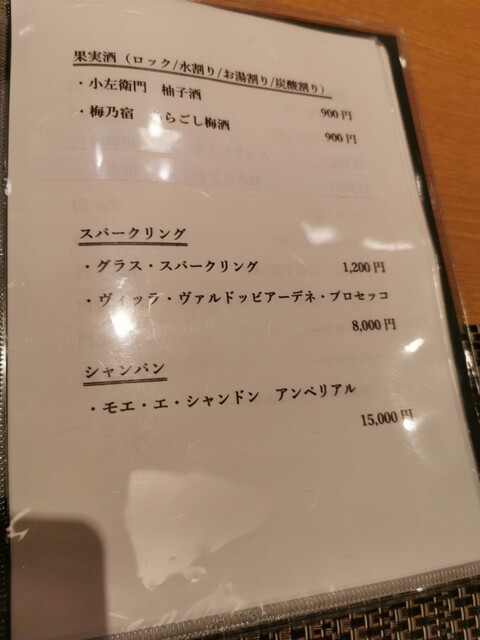 果実酒（ロック/水割り/お湯割り/炭酸割り）
・小左衛門 柚子酒
900円
・梅乃宿 らごし梅酒
900円
スパークリング
・グラス・スパークリング 1,200円
・ヴィッラ・ヴァルドッビアーデネ・プロセッコ
8,000円
シャンパン
・モエ・エ・シャンドン アンペリアル
15,000円